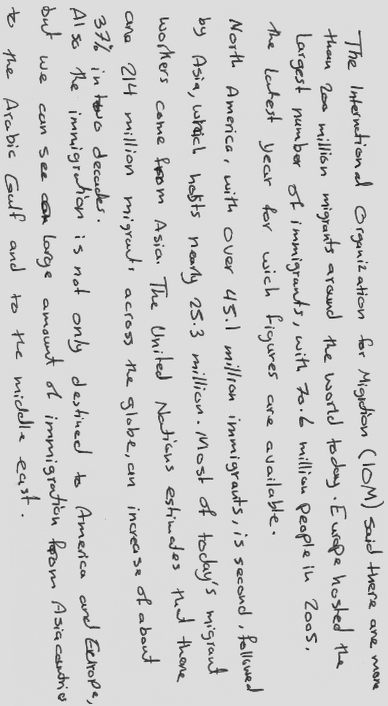 The International Organization for Migration (IOM) said there are more
than 200 million migrants around the world today. Europe hosted the
largest number of immigrants, with 70.6 million people in 2005,
the latest year for wich figures are available.
North America, with over 45.1 million immigrants, is second, followed
by Asia, which hosts nearly 25.3 million. Most of today's migrant
workers come from Asia. The United Nations estimates that there
are 214 million migrants across the globe, an increase of about
37% in two decades.
Also the immigration is not only destined to America and Eutrope,
but we can see large amount of immigration from Asia countries
to the Arabic Gulf and to the middle east.